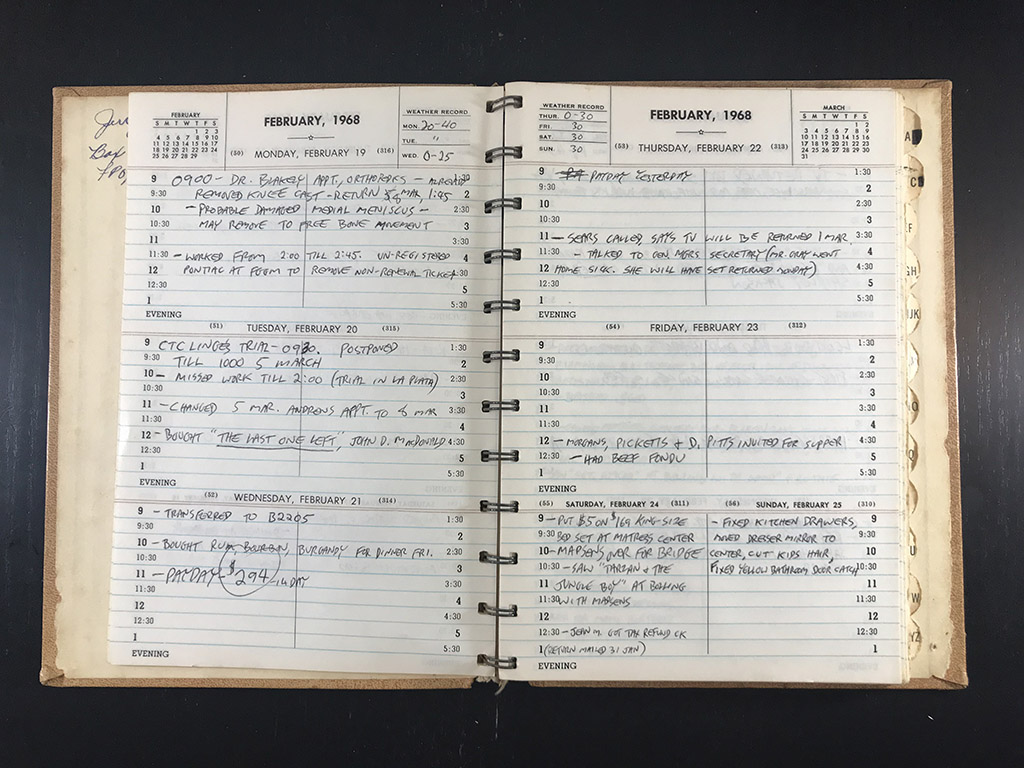 Box
FEBRUARY
S M T W T F S
1 2 3
4 5 6 7 8 9 10
11 12 13 14 15 16 17
18 19 20 21 22 23 24
25 26 27 28 29
FEBRUARY, 1968
WEATHER RECORD
MON. 20-40
TUE. "
WED. 0-25
(50) MONDAY, FEBRUARY 19 (316)
9 0900 - DR. BLAKELY APPT, ORTHOPEDICS - ALREADY 1:30
9:30 REMOVED KNEE CAST - RETURN 8 MAR, 1:45 2
10 - PROBABLE DAMAGED MEDIAL MENISCUS - 2:30
10:30 MAY REMOVE TO FREE BONE MOVEMENT 3
11 3:30
11:30 - WORKED FROM 2:00 TILL 2:45. UN-REGISTERED 4
12 PONTIAC AT FGGM TO REMOVE NON-RENEWAL TICKET 4:30
12:30 5
1 5:30
EVENING
(51) TUESDAY, FEBRUARY 20 (315)
9 CTC LINGE'S TRIAL - 0930. POSTPONED 1:30
9:30 TILL 1000 5 MARCH 2
10 - MISSED WORK TILL 2:00 (TRIAL IN LA PLATA) 2:30
10:30 3
11 - CHANGED 5 MAR. ANDREWS APPT. TO 8 MAR 3:30
11:30 4
12 - BOUGHT "THE LAST ONE LEFT", JOHN D. MACDONALD 4:30
12:30 5
1 5:30
EVENING
(52) WEDNESDAY, FEBRUARY 21 (314)
9 - TRANSFERRED TO B2205 1:30
9:30 2
10 - BOUGHT RUM, BOURBON, BURGANDY FOR DINNER FRI. 2:30
10:30 3
11 - PAYDAY - $294 - 14 DAY 3:30
11:30 4
12 4:30
12:30 5
1 5:30
EVENING
WEATHER RECORD
THUR. 0-30
FRI. 30
SAT. 30
SUN. 30
FEBRUARY, 1968
MARCH
S M T W T F S
1 2
3 4 5 6 7 8 9
10 11 12 13 14 15 16
17 18 19 20 21 22 23
24 25 26 27 28 29 30
31
(53) THURSDAY, FEBRUARY 22 (313)
9 - PAYDAY YESTERDAY 1:30
9:30 2
10 2:30
10:30 3
11 - SEARS CALLED, SAYS TV WILL BE RETURNED 1 MAR. 3:30
11:30 - TALKED TO GEN. MGRS SECRETARY (MR. GRAY WENT 4
12 HOME SICK. SHE WILL HAVE SET RETURNED MONDAY) 4:30
12:30 5
1 5:30
EVENING
(54) FRIDAY, FEBRUARY 23 (312)
9 1:30
9:30 2
10 2:30
10:30 3
11 3:30
11:30 4
12 - MORGANS, PICKETTS & D. PITTS INVITED FOR SUPPER 4:30
12:30 - HAD BEEF FONDU 5
1 5:30
EVENING
(55) SATURDAY, FEBRUARY 24 (311)
9 - PUT $5 ON $169 KING-SIZE
9:30 BED SET AT MATRESS CENTER
10 - MADSENS OVER FOR BRIDGE
10:30 - SAW "TARZAN & THE
11 JUNGLE BOY" AT BOLLING
11:30 WITH MADSENS
12
12:30 - JEAN M. GOT TAX REFUND CK
1 (RETURN MAILED 31 JAN)
EVENING
(56) SUNDAY, FEBRUARY 25 (310)
- FIXED KITCHEN DRAWERS, 9
MOVED DRESSER MIRROR TO 9:30
CENTER, CUT KIDS HAIR, 10
FIXED YELLOW BATHROOM DOOR CATCH 10:30
11
11:30
12
12:30
1
A
C
EF
GH
JK
O
U
W
YZ